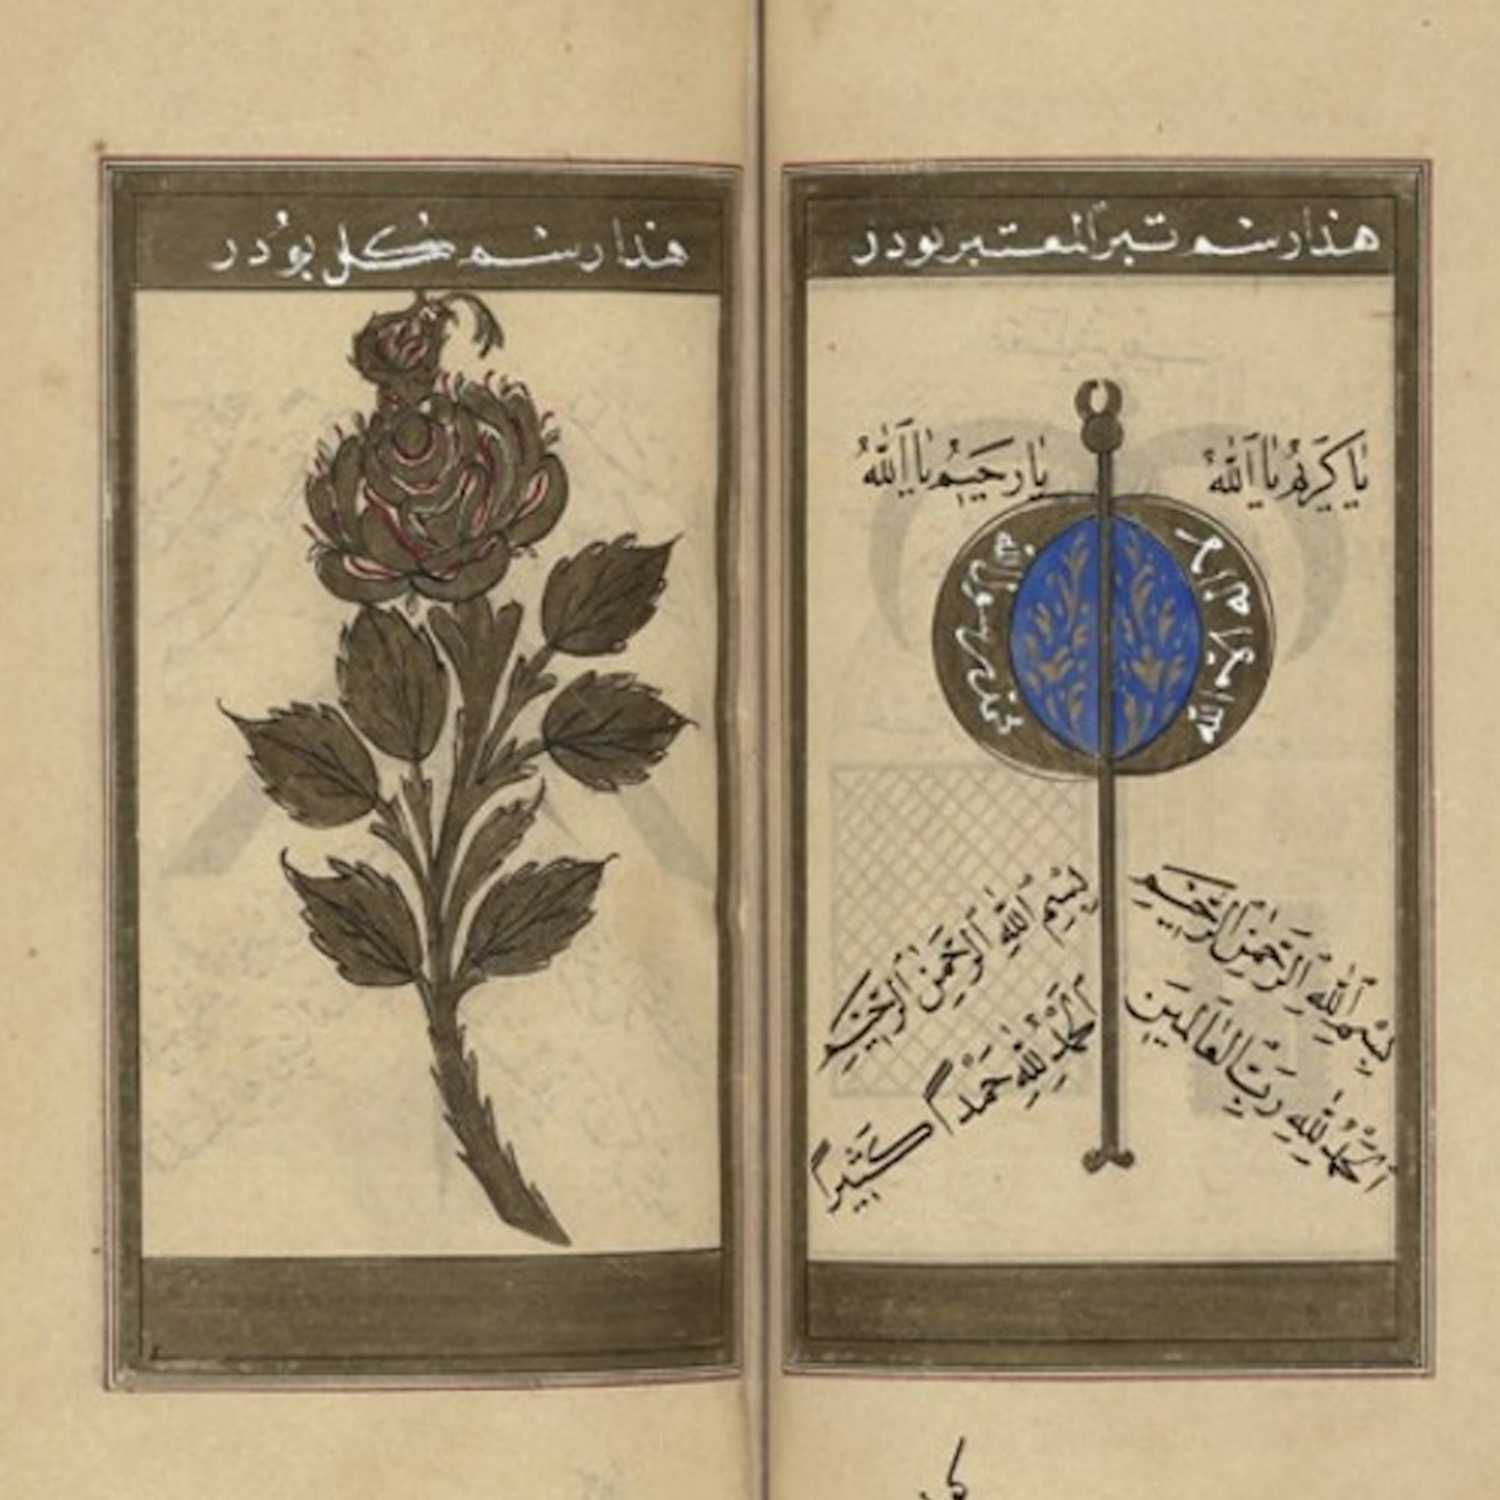 هذا رسم تبر المعتبر بودر
يا كَرِيمُ يا اَللّٰهُ
يا رَحِيمُ يا اَللّٰهُ
محمد رسول الله
بِسْمِ اللّٰهِ الرَّحْمٰنِ الرَّحِيمِ
اَلْحَمْدُ لِلّٰهِ رَبِّ الْعَالَمِينَ
بِسْمِ اللّٰهِ الرَّحْمٰنِ الرَّحِيمِ
اَلْحَمْدُ لِلّٰهِ حَمْداً كَثِيراً
هذا رسم كُل بُودر